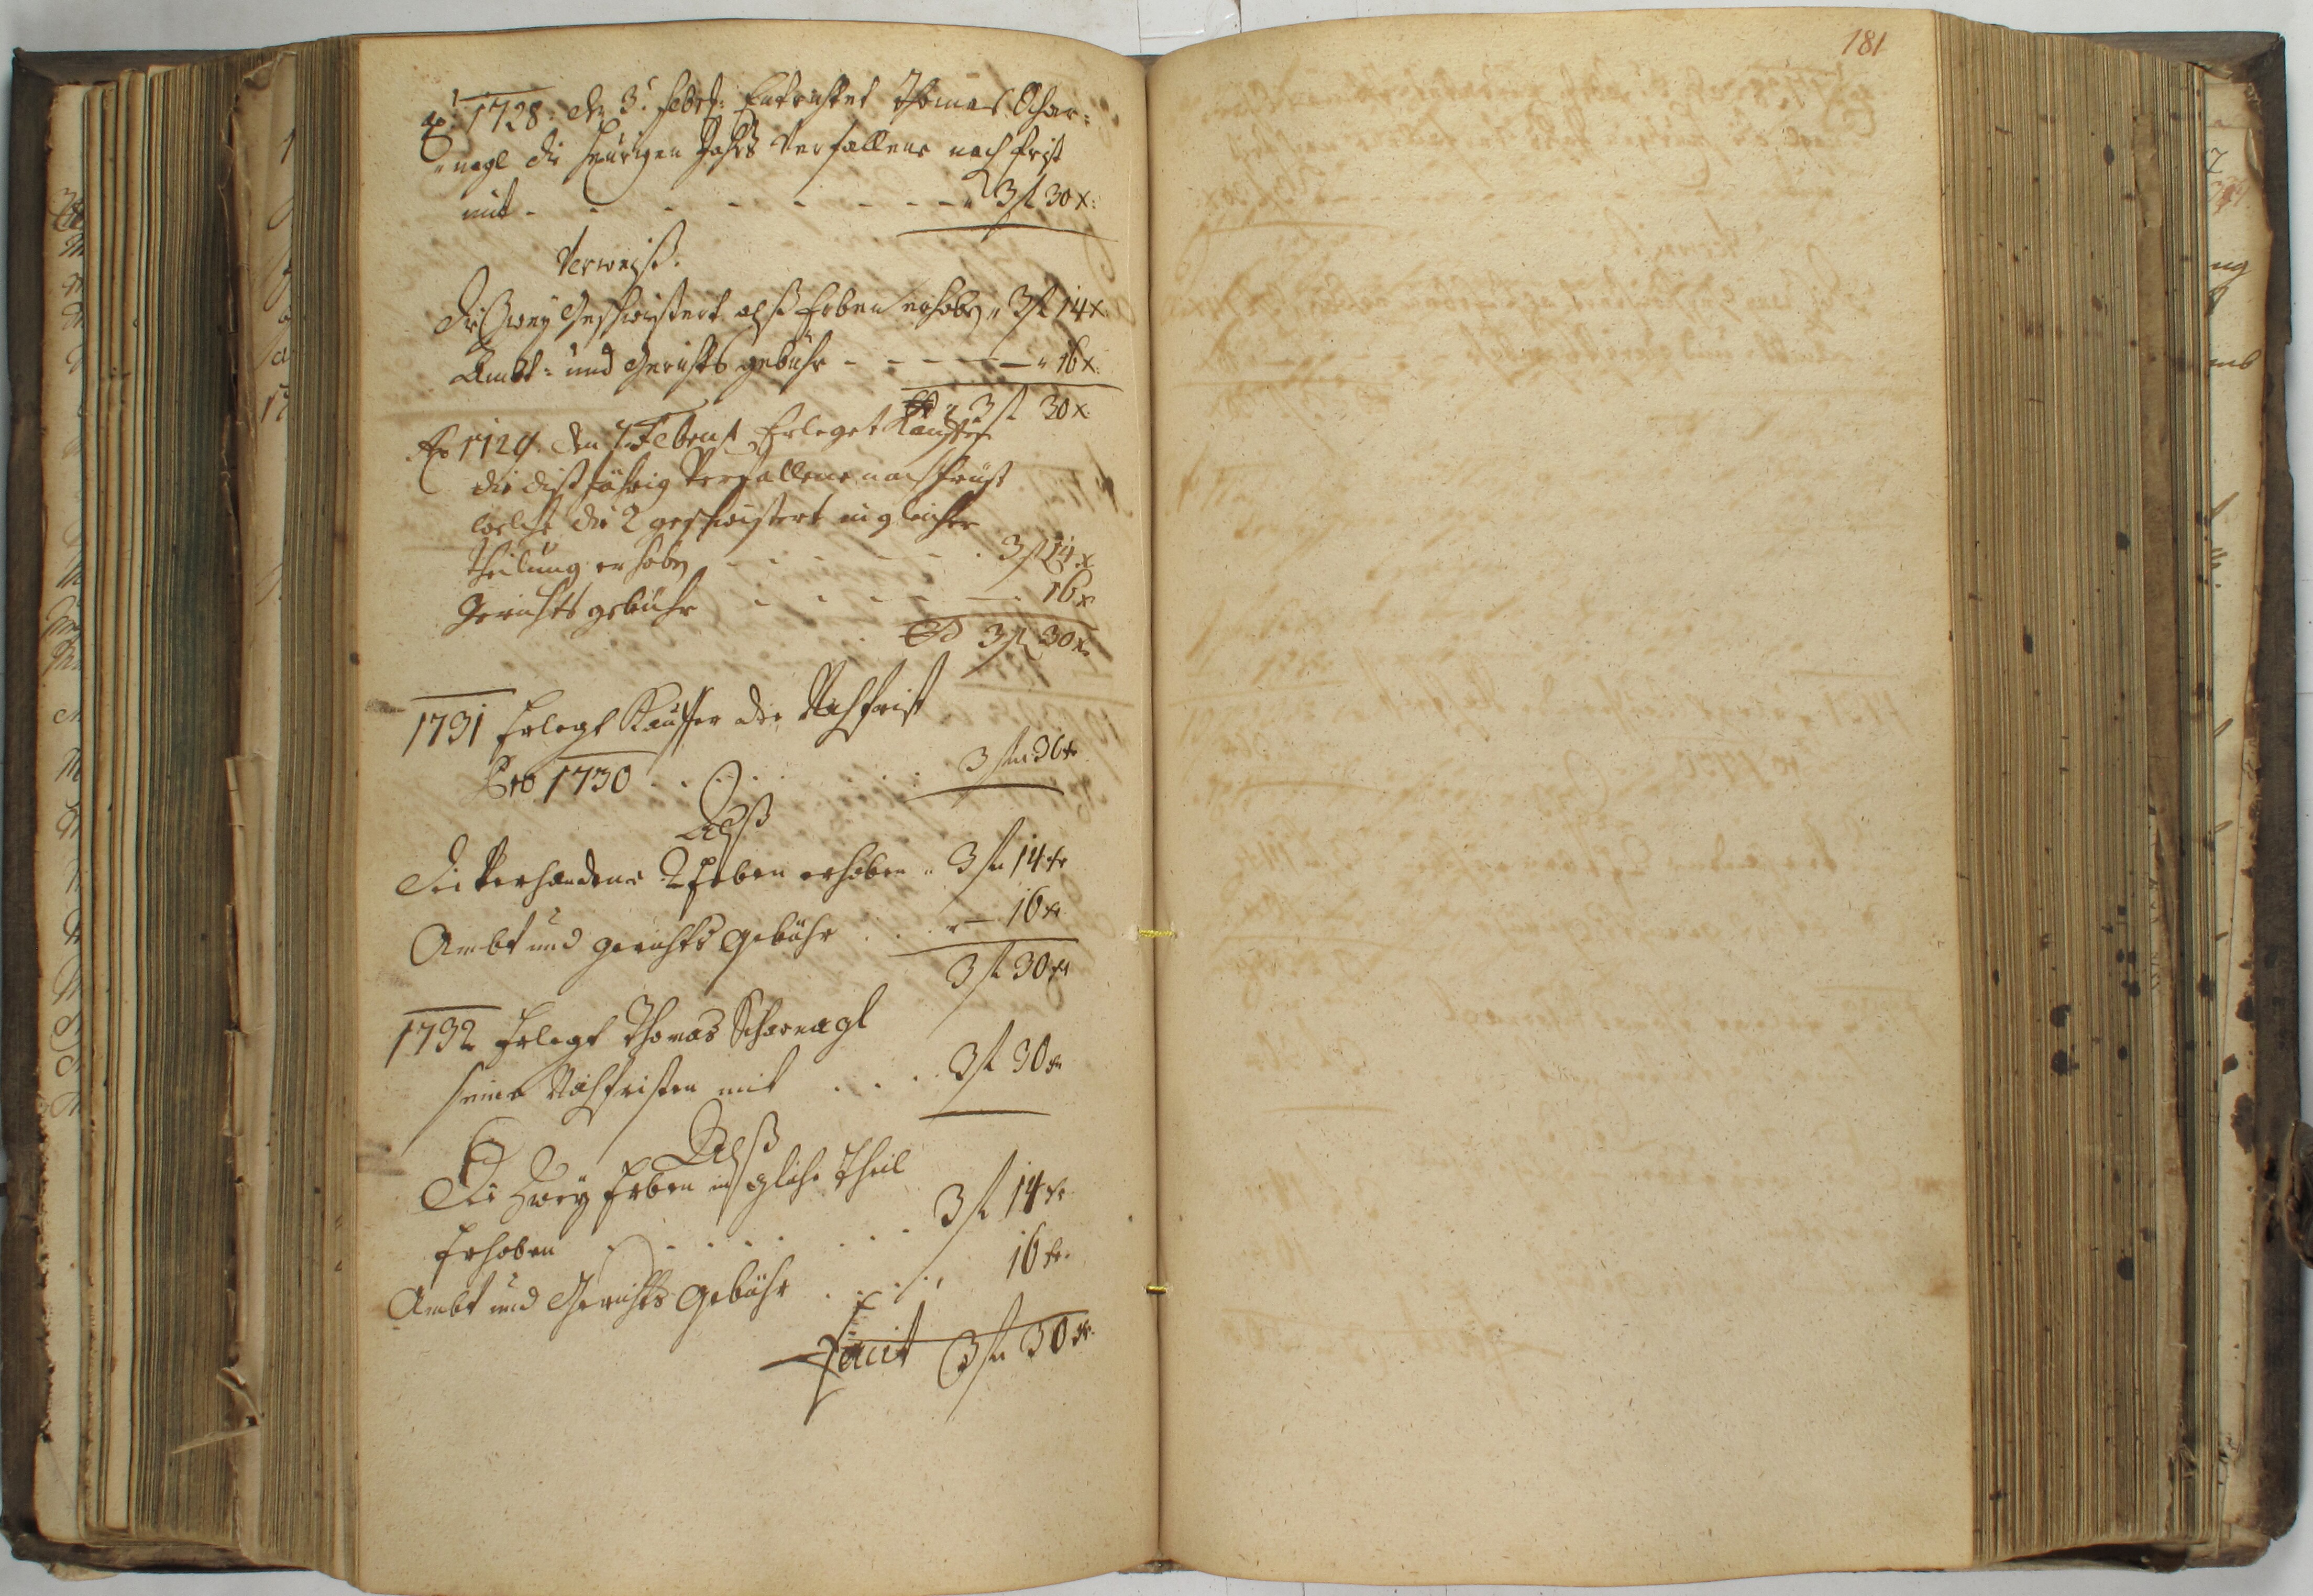 181
1728: dn 3t. febr: Entrichtet Thomas Schar=
nagl die heurigen Jahrs Verfallene nachfrist
mit - - - - - - - - 3 fl 30 x:
Verweiß.
Die Zwey Geschwistert alß Erben erhobn " 3 fl 14 x
Ambt= und Gerichts gebühr - - - - - " 16 x.
3 fl 30 x.
Ao 1729. den 7. Erleget Kauffer
die dißjährig Verfallene nachfrüst
welche die 2 geschwistert in gleicher
theilung erhobn - - - - - . 3 fl 14 x
Gerichts gebühr - - - - - . 16 x
3 fl 30 x
1731 Erlegt Kauffer die Nachfrist
Pro 1730 . . . . . . 3 fl 30 kr
Alß
Die Verhandene 2 Erben erhoben " 3 fl 14 kr
Ambt und gerichts gebühr . . . " — 16 kr
3 fl 30 kr
1732 Erlegt Thomas Scharnagl
seine Nachfristen mit . . . . 3 fl 30 kr
Alß
Die Zwey Erben in gliche theil
Erhoben . . . . . . . . 3 fl 14 kr
Ambt und Gerichts gebühr . . . . 16 kr.
Facit 3 fl 30 kr.